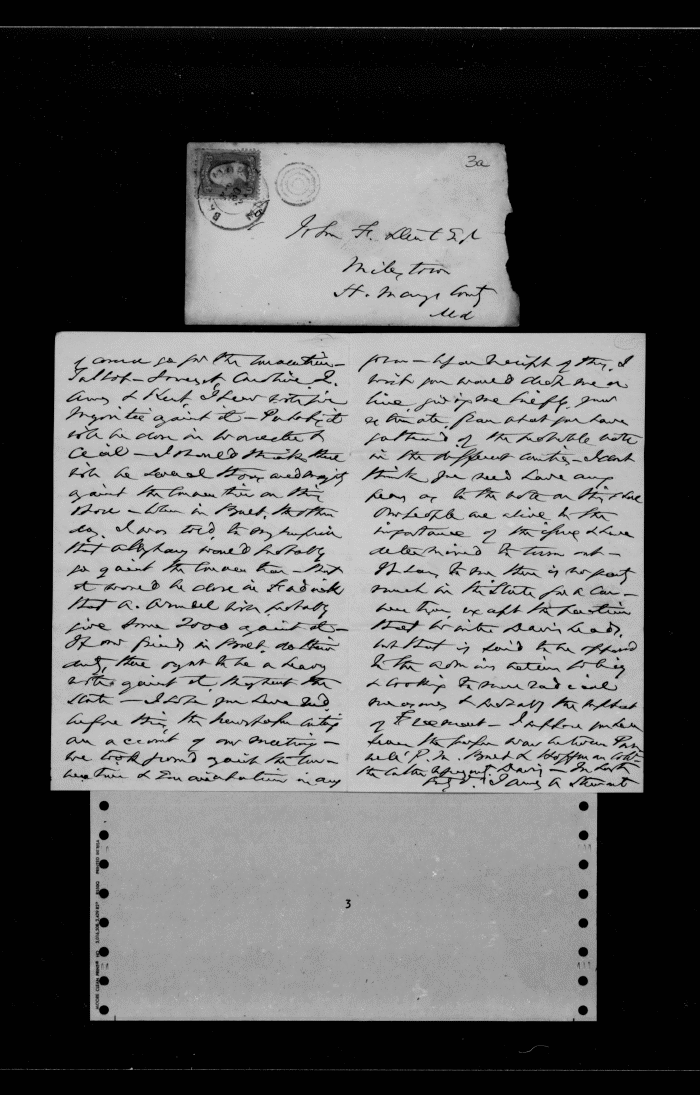 3a
John F. Dent Esq
Milestown
St. Marys County
Md
go for the Convention -
Talbot - Somerset, Caroline Q.
Anns & Kent, I hear will give
majorities against it - Probably it
will be close in Worcester &
Cecil - I should think there
will be several thousand majority
against the Convention on this
Shore - When in Balt. the other
day, I was told to my surprise
that Alleghany would probably
go against the Convention - that
it would be close in Frederick
that A. Arundel will probably
give some 2000 against it -
If our friends in Balt. do their
duty, there ought to be a heavy
vote against it, throughout the
State - I hope you have read
before this, the newspaper
an account of our meeting -
we took ground against the Con-
vention & Emancipation in any
form - Upon receipt of this, I
wish you would drop me a
line, giving me briefly, your
estimate, from what you have
gathered of the probable vote
in the different counties - I dont
think you need have any
fears as to the vote on this Shore
Our people are alive to the
importance of the issue & have
determined to turn out -
It seems to me there is no party
much in the State for a Con-
vention, except the faction
that Winter Davis leads,
but that is said to be opposed
to the administration to being
& looking to more radical
measures & probably the support
of Freemont - I suppose you have
seen the paper war between Purn-
ell P.M. Balt & Hoffman Coll-
the latter against Davis - In haste
James A Stewart
3